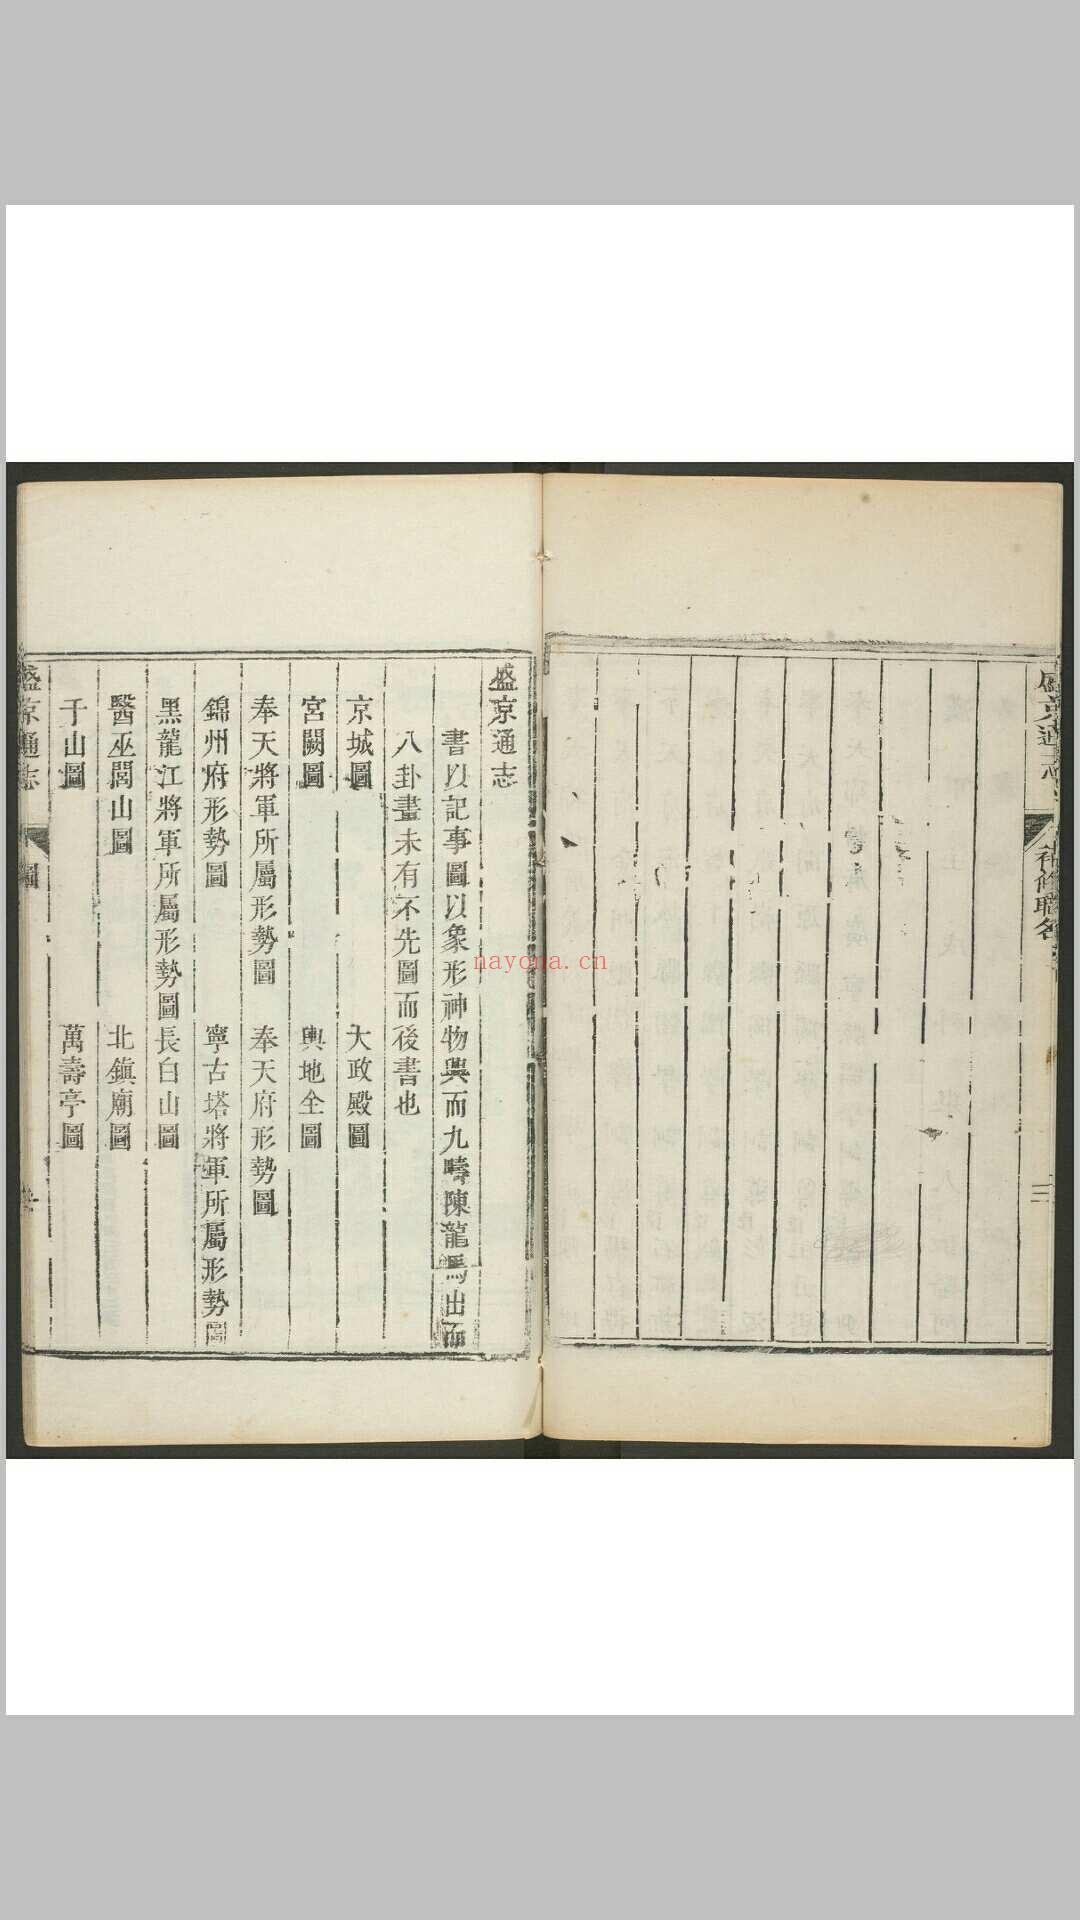 盛京通志
補修職名
二
盛京通志
書以記事圖以象形神物興而九疇陳龍馬出而
八卦畫未有不先圖而後書也
京城圖 大政殿圖
宮闕圖 輿地全圖
奉天將軍所屬形勢圖 奉天府形勢圖
錦州府形勢圖 寧古塔將軍所屬形勢圖
黑龍江將軍所屬形勢圖 長白山圖
醫巫閭山圖 北鎮廟圖
千山圖 萬壽亭圖
盛京通志
圖
nayona.cn